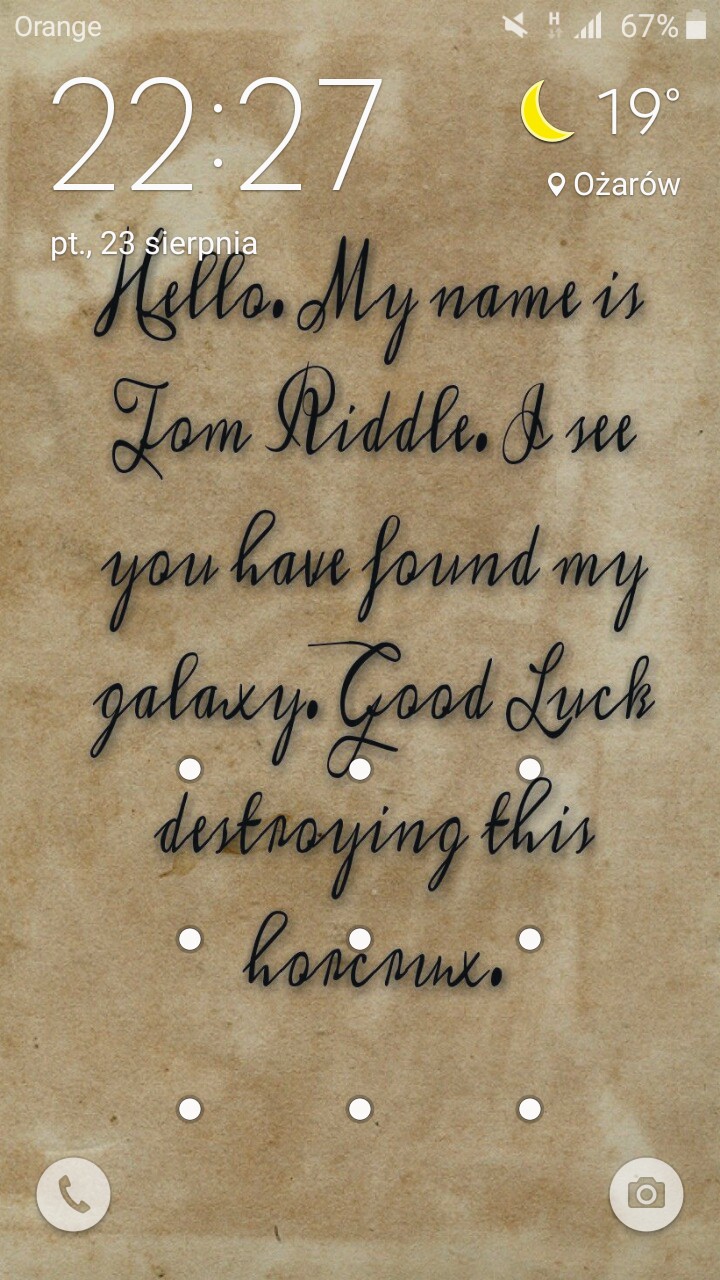 Orange H 67%
22:27 19°
Ożarów
pt., 23 sierpnia
Hello. My name is
Tom Riddle. I see
you have found my
galaxy. Good Luck
destroying this
horcrux.